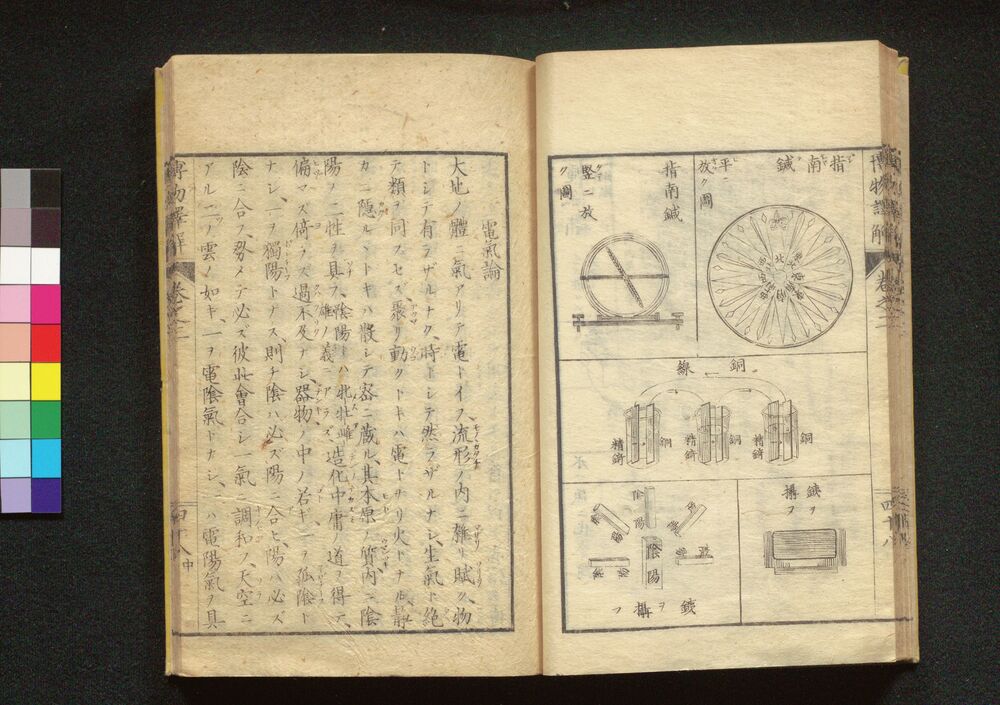 指南鍼
平ニ
放ク圖
指南鍼
竪ニ放
ク圖
北
銅線
銅
精錡
銅
精錡
銅
精錡
鋏ヲ
攝フ
陰
陽
陰陽
鋏ヲ攝フ
博物譯解
卷之二
四十八
電氣論
大地ノ體ニ氣アリテ電トイフ、流形ノ内ニ雜リ賦ク、物
トシテ有ラザルナク、時トシテ然ラザルナシ、生氣ト絶
テ類ヲ同フセズ、聚リ動クトキハ電トナリ火トナル、靜
カニ隱ルヽトキハ散シテ密ニ藏ル、其本原ノ質内ニ陰
陽ノ二性ヲ具フ、陰陽トハ牝牡雌雄ノ義ニアラズ、造化中庸ノ道ヲ得テ、
偏マズ倚ラズ過不及ナシ、器物ノ中ノ若キ、一ヲ孤陰ト
ナシ、一ヲ獨陽トナス、則チ陰ハ必ズ陽ニ合ヒ、陽ハ必ズ
陰ニ合フ、務メテ必ズ彼此會合シ一氣ニ調和ス、天空ニ
アル二ツノ雲ノ如キ、一ヲ電陰氣トナシ、一ハ電陽氣ヲ具
博物譯解
卷之二
四十八
中